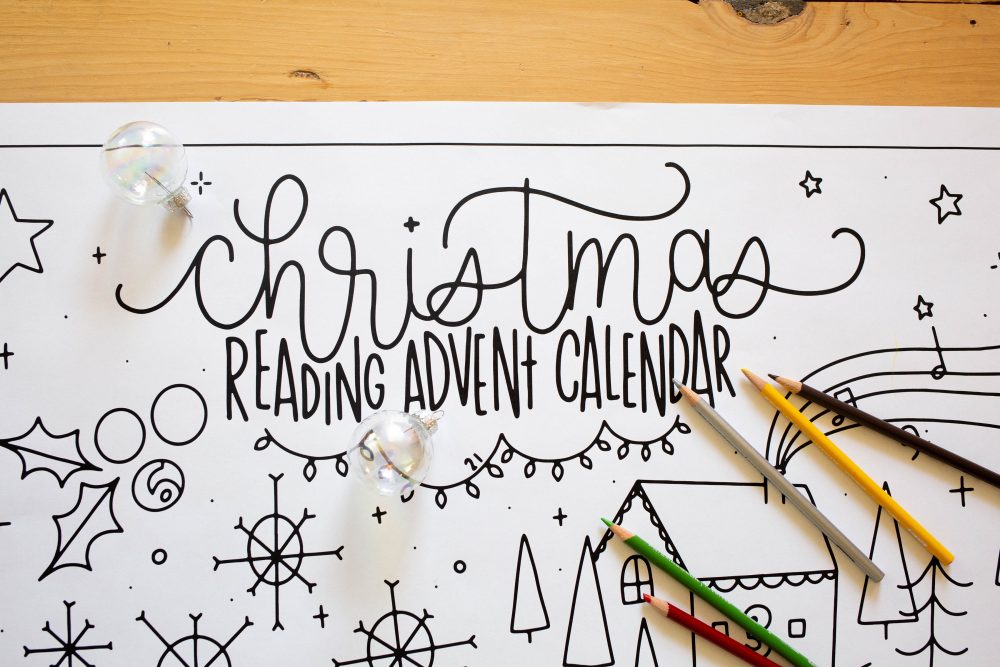 christmas
READING ADVENT CALENDAR
21